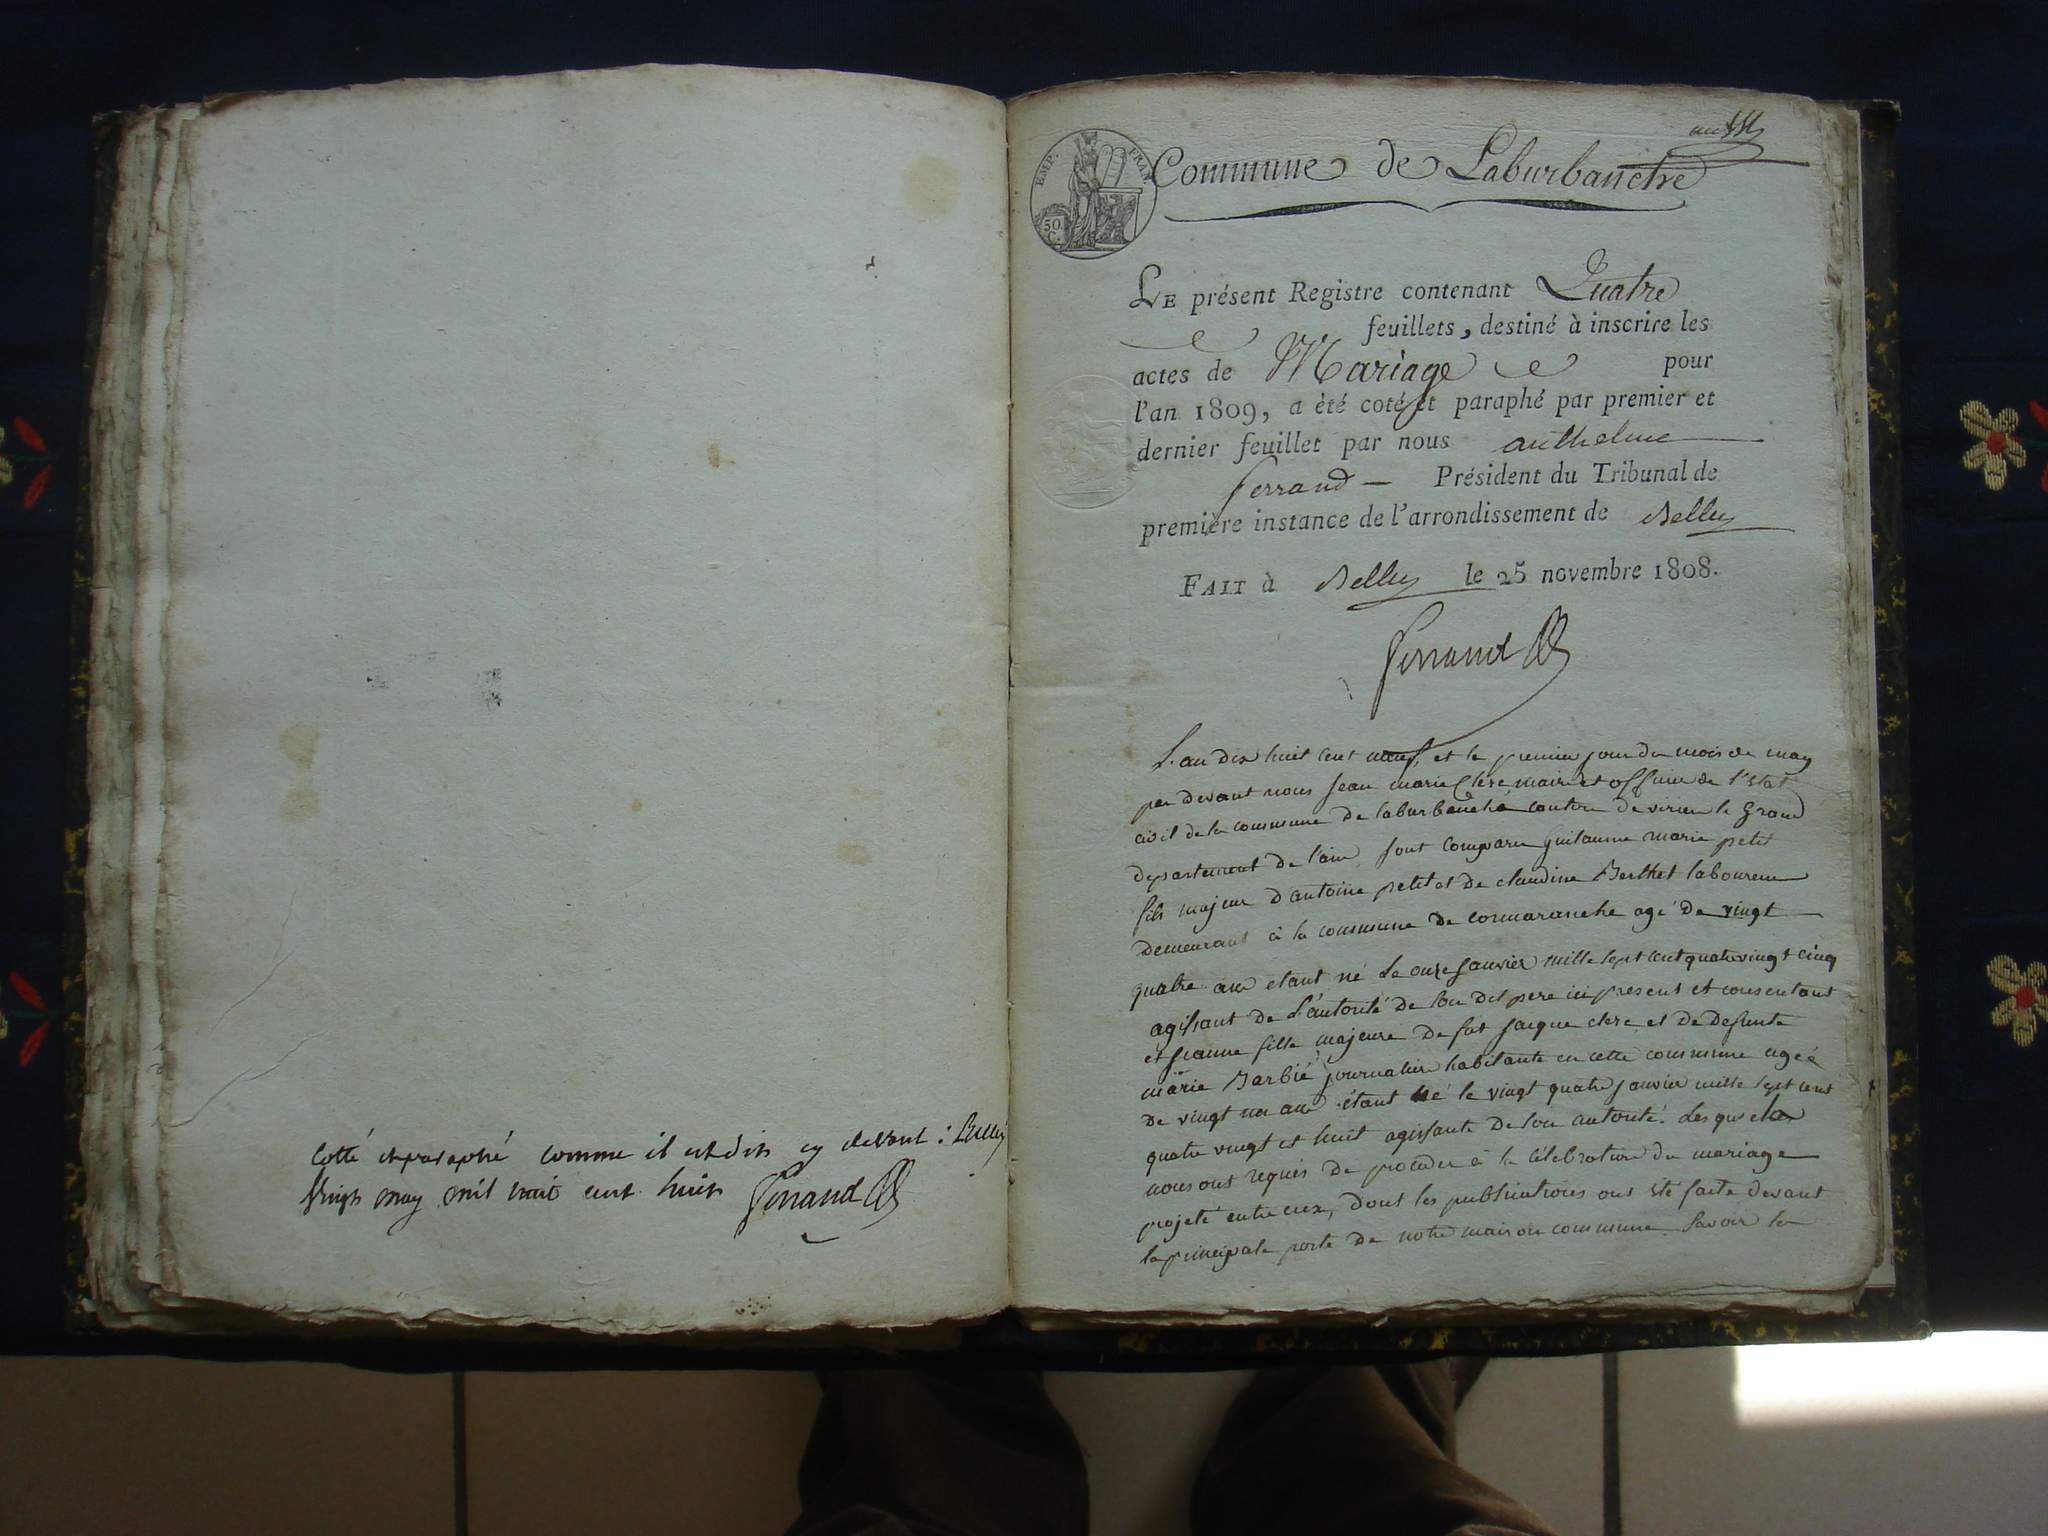 Cotté et paraphé comme il est dit cy devant : Belley
Vingt may mil huit cent huit Ferrand
EMP. FRAN.
50
C.
Commune de Laburbanche
LE présent Registre contenant Quatre
feuillets, destiné à inscrire les
actes de Mariage pour
l'an 1809, a été coté et paraphé par premier et
dernier feuillet par nous anthelme
ferrand — Président du Tribunal de
première instance de l'arrondissement de Belley
FAIT à Belley le 25 novembre 1808.
Ferrand
L'an dix huit cent neuf, et le premier jour du mois de may
par devant nous jean marie Clerc maire et officier de l'état
civil de la commune de laburbanche canton de virieu le Grand
departement de l'ain, sont comparu guilaume marie petit
fils majeur d'antoine petit et de claudine Berthet laboureur
demeurant à la commune de cormaranche agé de vingt
quatre ans etant né le onze janvier mille sept cent quatre vingt cinq
agissant de l'autorité de son dit pere ici present et consentant
et jeanne fille majeure de fut jacque clerc et de defunte
marie Barbié journalier habitante en cette commune agée
de vingt un ans étant né le vingt quatre janvier mille sept cent
quatre vingt et huit agissante de son autorité. Lesquels
nous ont requis de proceder à la célébration du mariage
projeté entre eux, dont les publications ont été faite devant
la principale porte de notre maison commune Savoir la